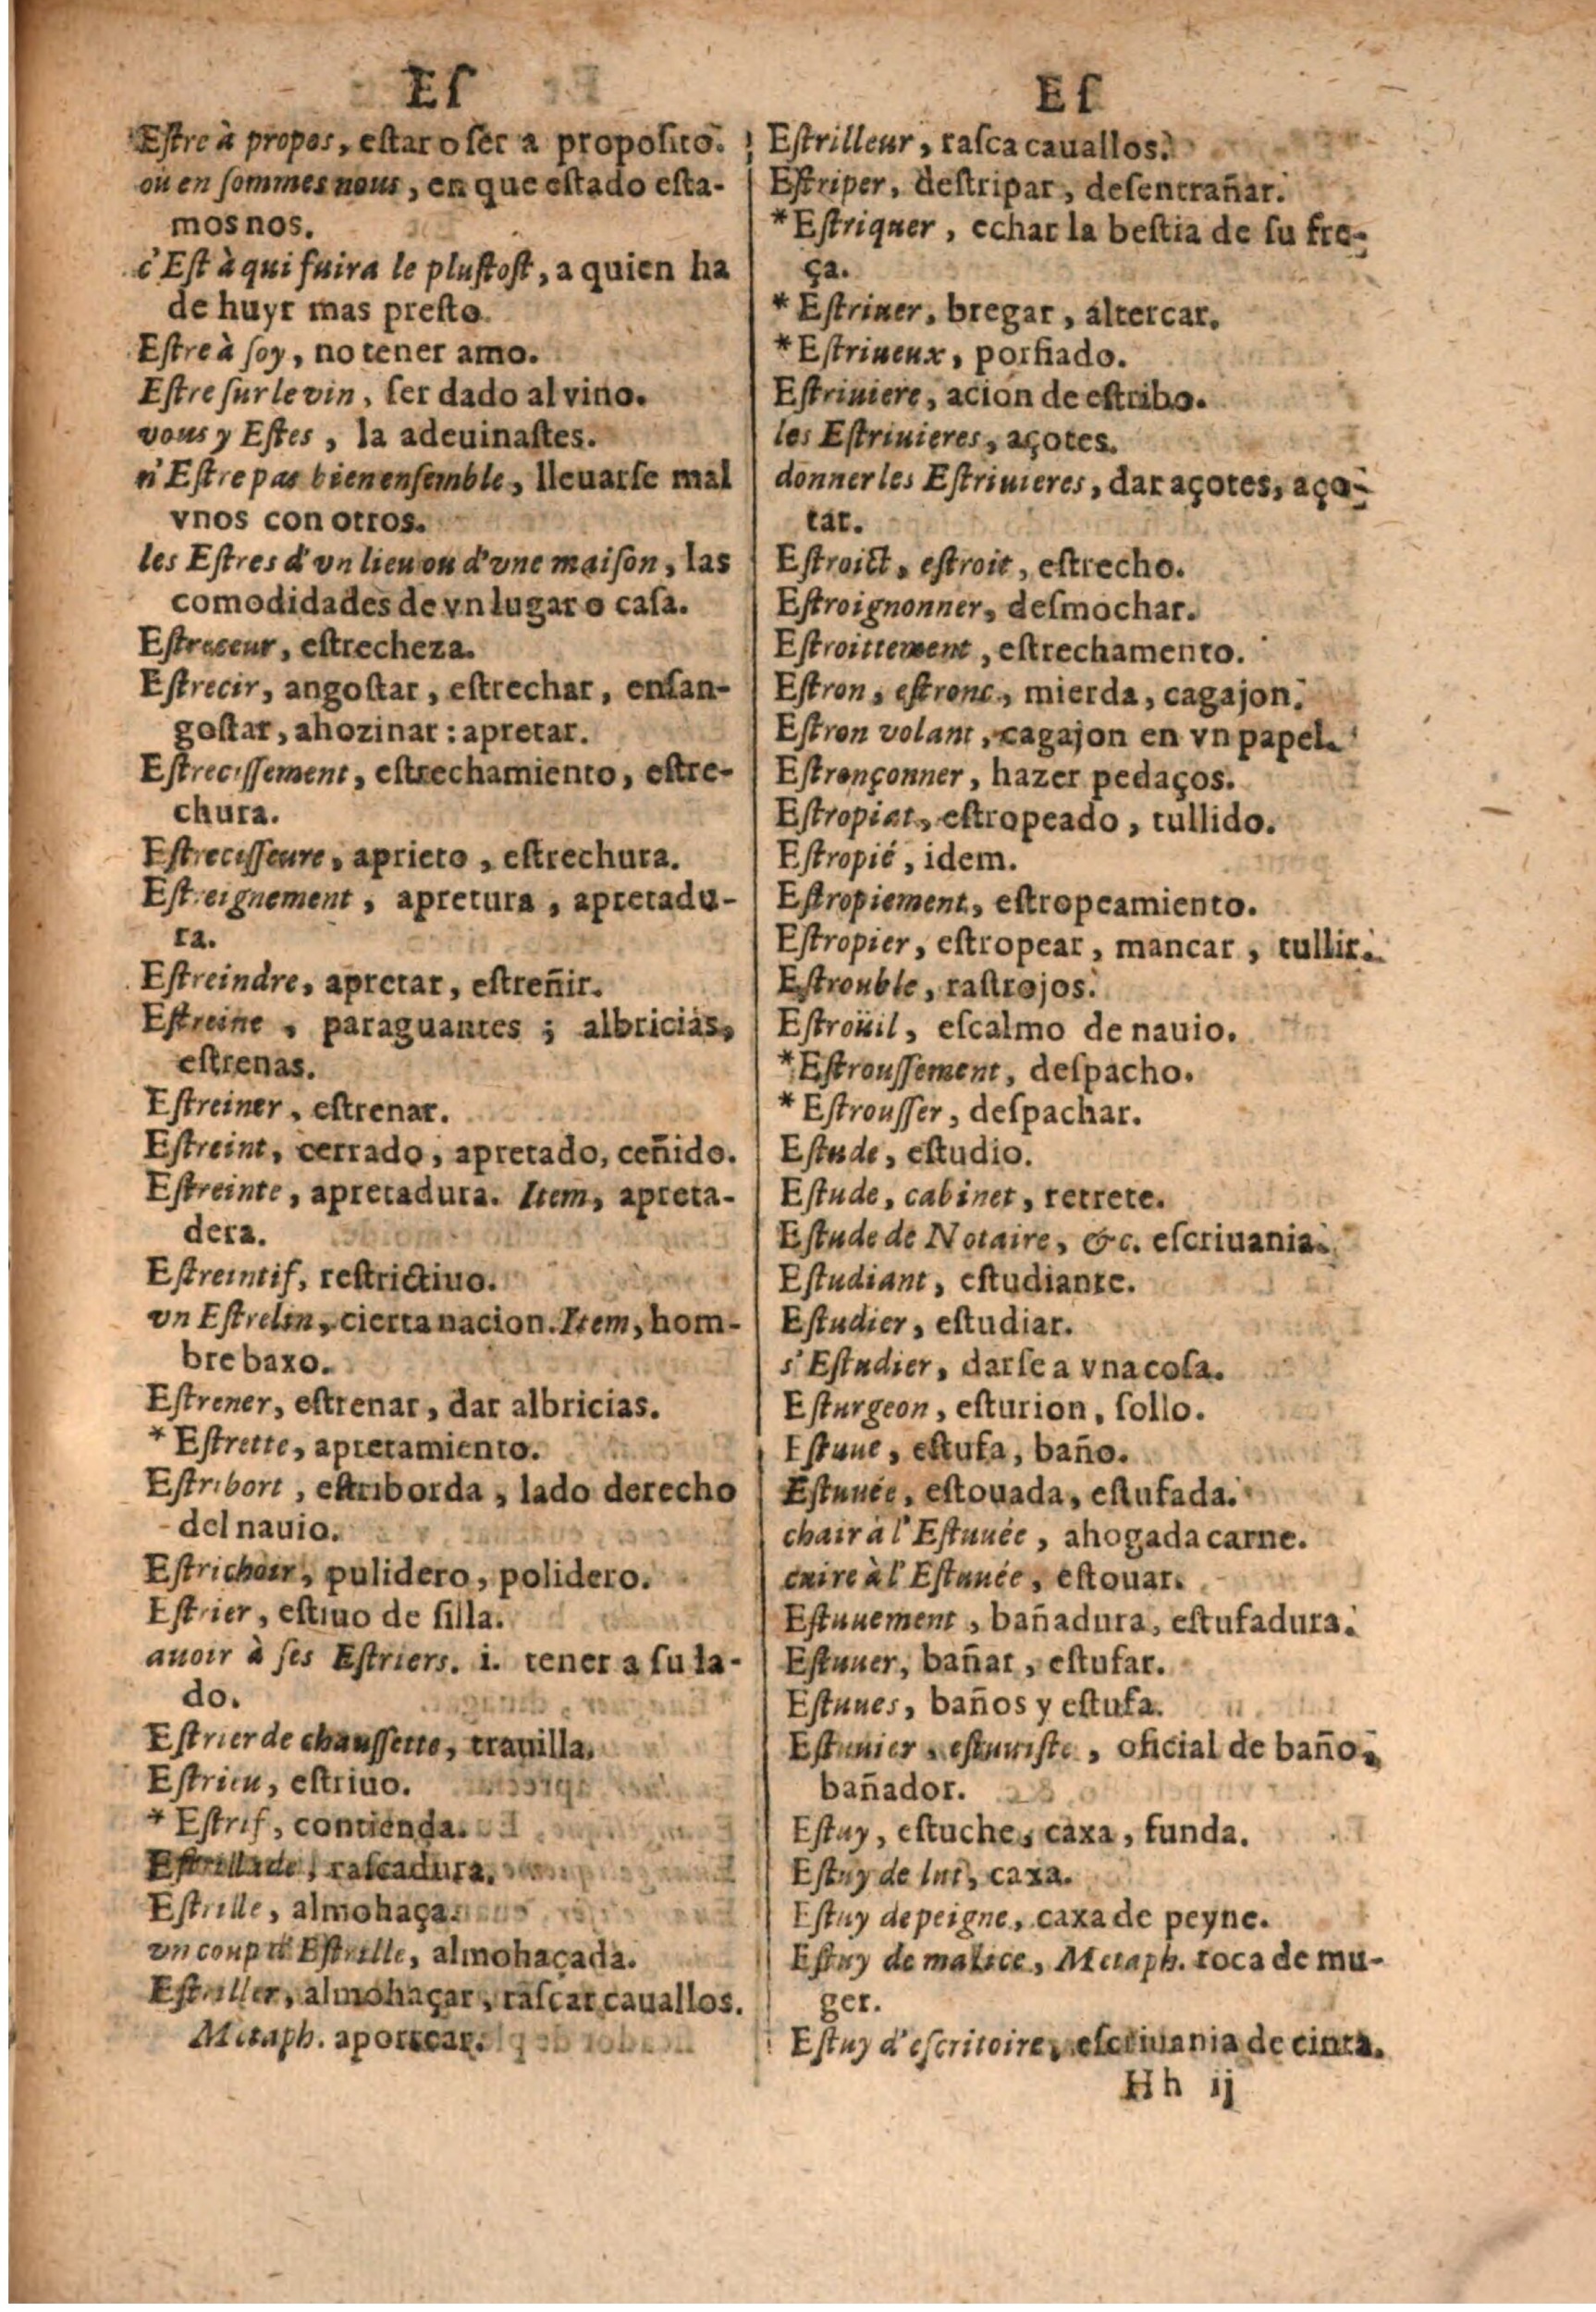 Eſ
Eſtre à propos, eſtar o ſer a propoſito.
où en ſommes nous, en que eſtado eſta-
mos nos.
c'Eſt à qui fuira le pluſtoſt, a quien ha
de huyr mas preſto.
Eſtre à ſoy, no tener amo.
Eſtre ſur le vin, ſer dado al vino.
vous y Eſtes, la adeuinaſtes.
n'Eſtre pas bien enſemble, lleuarſe mal
vnos con otros.
les Eſtres d'vn lieu ou d'vne maiſon, las
comodidades de vn lugar o caſa.
Eſtreceur, eſtrecheza.
Eſtrecir, angoſtar, eſtrechar, enſan-
goſtar, ahozinar : apretar.
Eſtreciſſement, eſtrechamiento, eſtre-
chura.
Eſtreciſſeure, aprieto, eſtrechura.
Eſtreignement, apretura, apretadu-
ra.
Eſtreindre, apretar, eſtreñir.
Eſtreine, paraguantes ; albricias,
eſtrenas.
Eſtreiner, eſtrenar.
Eſtreint, cerrado, apretado, ceñido.
Eſtreinte, apretadura. Item, apreta-
dera.
Eſtreintif, reſtrictiuo.
vn Eſtrelin, cierta nacion. Item, hom-
bre baxo.
Eſtrener, eſtrenar, dar albricias.
* Eſtrette, apretamiento.
Eſtribort, eſtriborda, lado derecho
del nauio.
Eſtrichoir, pulidero, polidero.
Eſtrier, eſtiuo de ſilla.
auoir à ſes Eſtriers. i. tener a ſu la-
do.
Eſtrier de chauſſette, trauilla.
Eſtrieu, eſtriuo.
* Eſtrif, contienda.
Eſtrillade, raſcadura.
Eſtrille, almohaça.
vn coup d'Eſtrille, almohaçada.
Eſtriller, almohaçar, raſcar cauallos.
Metaph. aporrear.
Eſ
Eſtrilleur, raſca cauallos.
Eſtriper, deſtripar, deſentrañar.
*Eſtriquer, echar la beſtia de ſu fre-
ça.
* Eſtriuer, bregar, altercar.
*Eſtriueux, porfiado.
Eſtriuiere, acion de eſtribo.
les Eſtriuieres, açotes.
donner les Eſtriuieres, dar açotes, aço-
tar.
Eſtroict, eſtroit, eſtrecho.
Eſtroignonner, deſmochar.
Eſtroittement, eſtrechamento.
Eſtron, eſtronc, mierda, cagajon.
Eſtron volant, cagajon en vn papel.
Eſtronçonner, hazer pedaços.
Eſtropiat, eſtropeado, tullido.
Eſtropié, idem.
Eſtropiement, eſtropeamiento.
Eſtropier, eſtropear, mancar, tullir.
Eſtrouble, raſtrojos.
Eſtroüil, eſcalmo de nauio.
*Eſtrouſſement, deſpacho.
* Eſtrouſſer, deſpachar.
Eſtude, eſtudio.
Eſtude, cabinet, retrete.
Eſtude de Notaire, &c. eſcriuania.
Eſtudiant, eſtudiante.
Eſtudier, eſtudiar.
s'Eſtudier, darſe a vna coſa.
Eſturgeon, eſturion, ſollo.
Eſtuue, eſtufa, baño.
Eſtuuée, eſtouada, eſtufada.
chair à l'Eſtuuée, ahogada carne.
cuire à l'Eſtuuée, eſtouar.
Eſtuuement, bañadura, eſtufadura.
Eſtuuer, bañar, eſtufar.
Eſtuues, baños y eſtufa.
Eſtuuier, eſtuuiſte, oficial de baño,
bañador.
Eſtuy, eſtuche, caxa, funda.
Eſtuy de lut, caxa.
Eſtuy de peigne, caxa de peyne.
Eſtuy de malice, Metaph. toca de mu-
ger.
Eſtuy d'eſcritoire, eſcriuania de cinta.
Hh ij